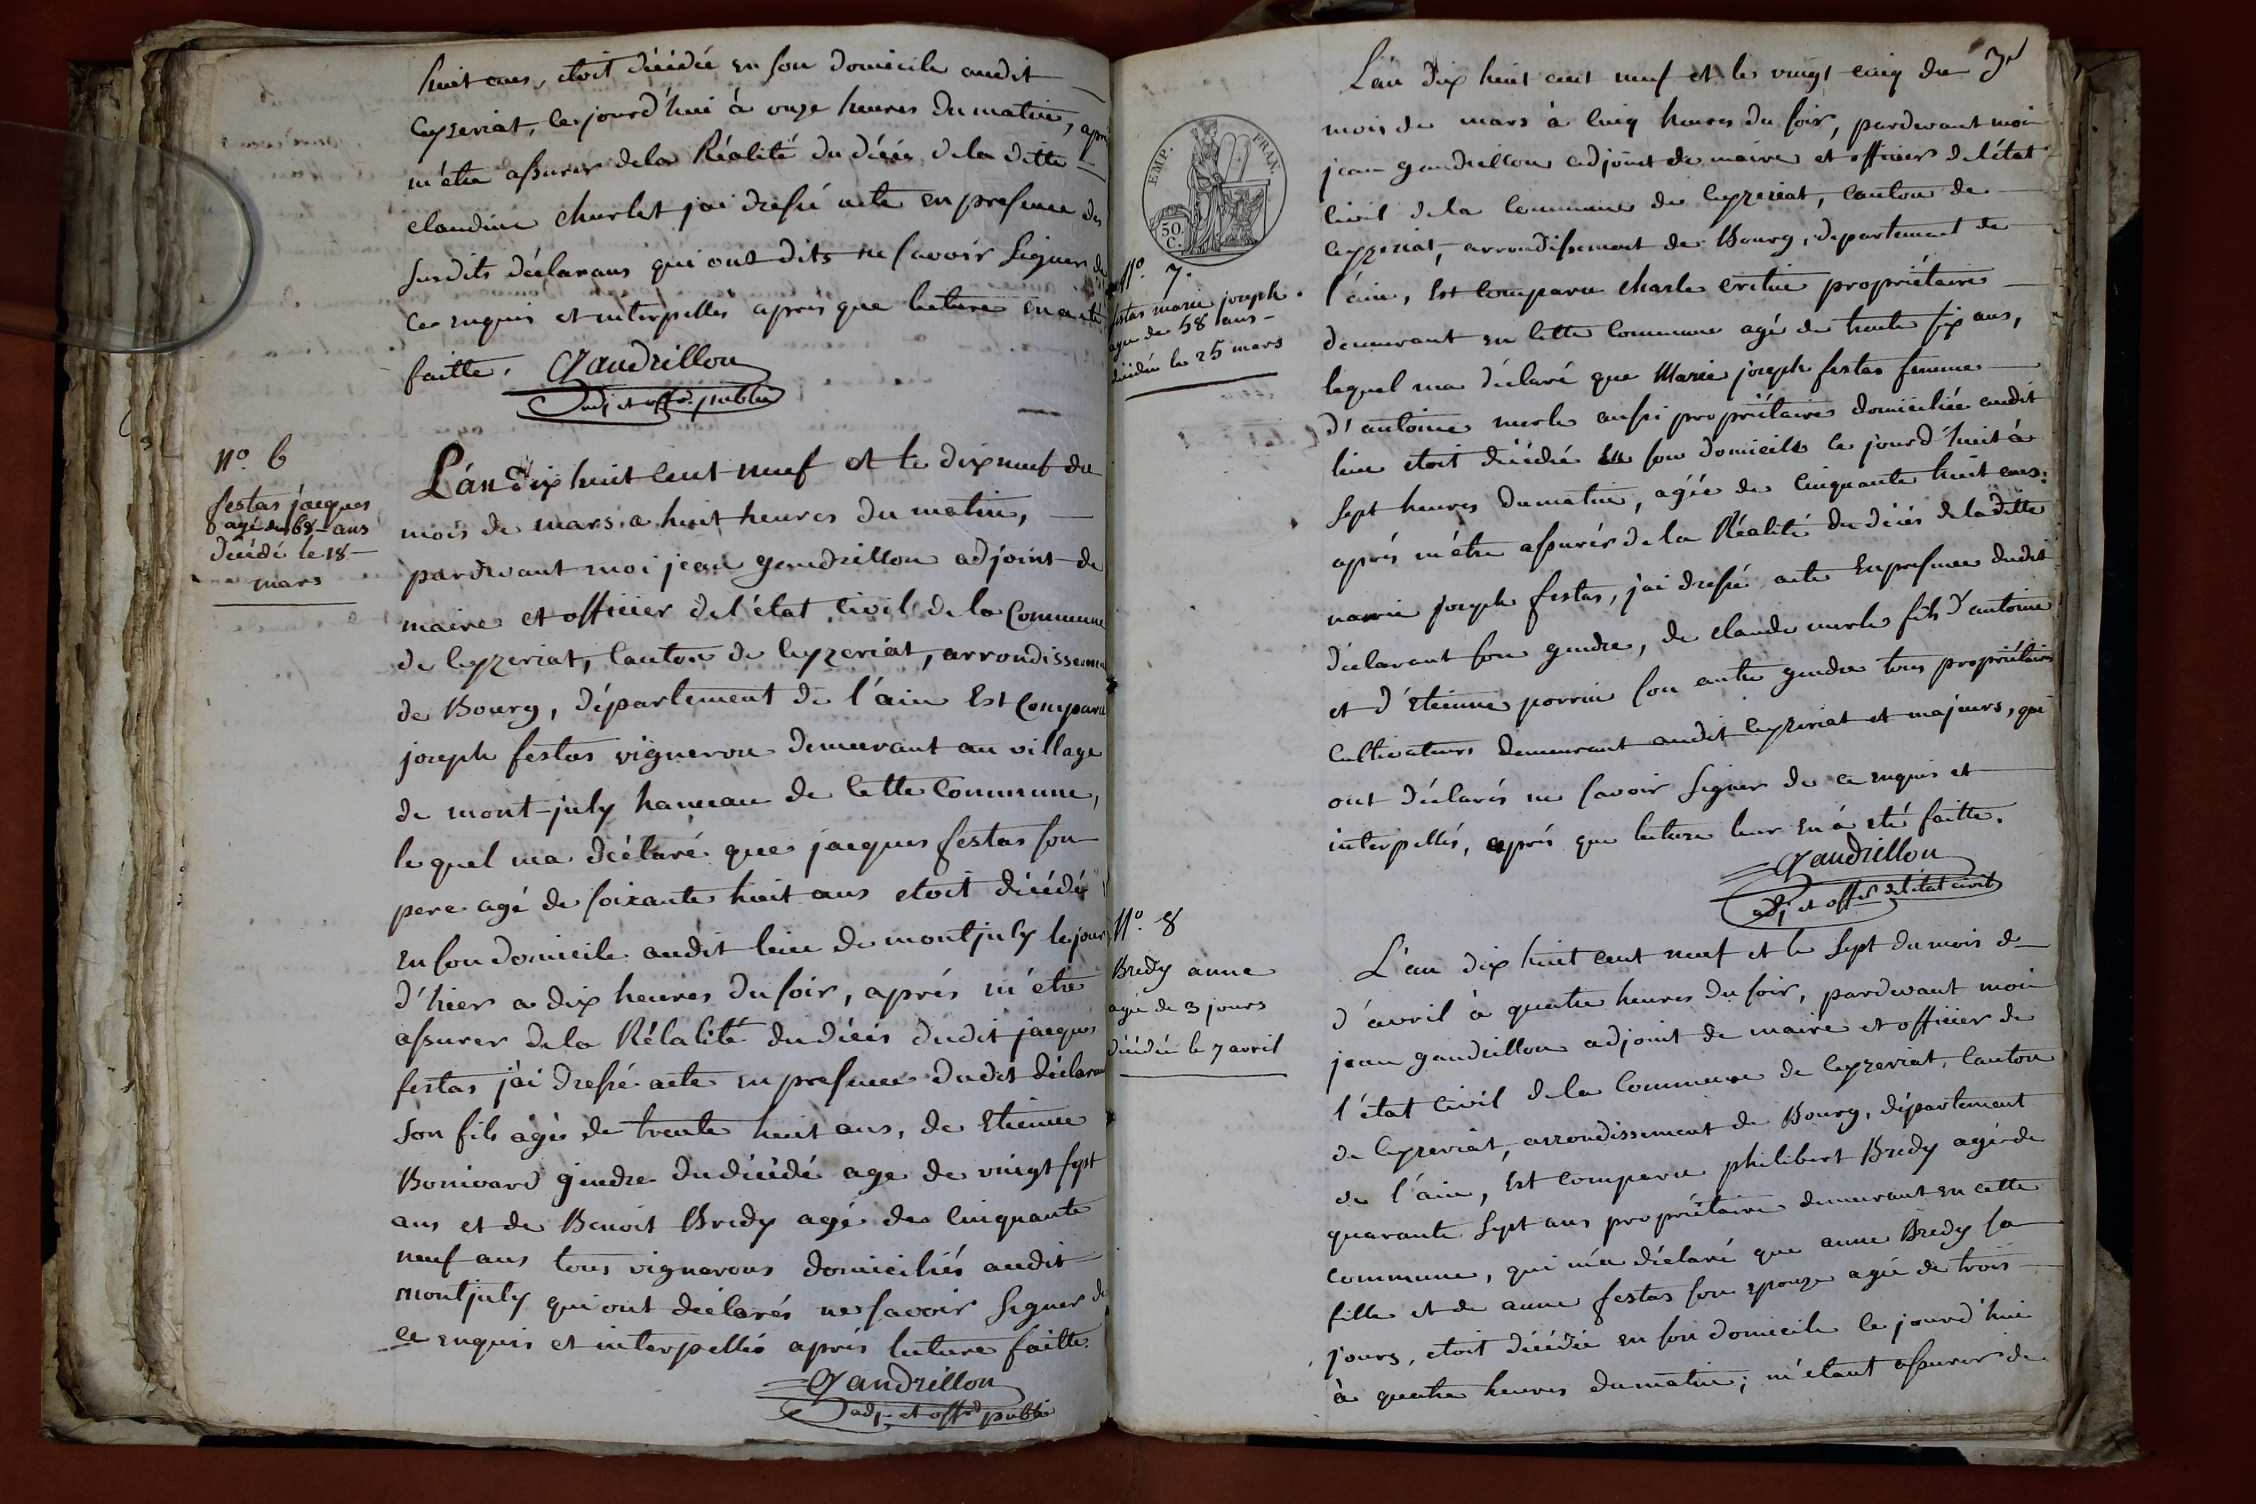 huit ans, etoit décédée en son domicile audit
Ceyzeriat, cejourd'hui à onze heures du matin, apré
m'etre assurer dela Réalité du décés dela ditte
claudine charlet j'ai dressé acte en presence des
susdits déclarans qui ont dits ne savoir signer de
ce enquis et interpellés après que lecture en a eté
faitte. Gandrillon
adj et offer. public
N.o 6
festas jacques
agé de 68 ans
décédé le 18
mars
L'an dix huit cent neuf et le dix neuf du
mois de mars a huit heures du matin,
pardevant moi jean gandrillon adjoint de
maire et officier de l'état civil de la Commune
de Ceyzeriat, Canton de Ceyzeriat, arrondisseme
de Bourg, département de l'ain Est Comparu
joseph festas vigneron demeurant au village
de mont-july hameau de Cette Commune,
le quel m'a déclaré que jacques festas son
pere agé de soixante huit ans etoit décédé
en son domicile audit lieu de montjuly le jour
d'hier a dix heures du soir, aprés m'etre
assurer de la Rélalité du décés dudit jacques
festas j'ai dressé acte en presence dudit déclaran
son fils agé de trente huit ans, de Etienne
Bonivard gendre du décédé age de vingt sept
ans et de Benoit Bredy agé de Cinquante
neuf ans tous vignerons domiciliés audit
montjuly qui ont déclarés ne savoir signer de
ce enquis et interpellés aprés lecture faitte.
Gandrillon
adj. et offer public
EMP. FRAN.
50. C.
L'an dix huit cent neuf et le vingt cinq du
mois de mars à Cinq heures du soir, pardevant moi
jean gandrillon adjoint de maire et officier de l'état
Civil de la Commune de Ceyzeriat, Canton de
Ceyzeriat, arrondissement de Bourg, departement de
l'ain, Est Comparu charle propriétaire
demeurant en Cette Commune agé de trente six ans,
lequel m'a déclaré que Marie joseph festas femme
d'antoine merle aussi propriétaire domiciliée audit
lieu etoit décédée en son domicile ce jourd'huit à
sept heures du matin, agée de Cinquante huit ans;
aprés m'être assurér de la Réalité du décés de la ditte
marie joseph festas, j'ai dressé acte En presence dudit
déclarant son gendre, de claude merle fils d'antoine
et d'Etienne perrin son autre gendre tous propriétaires
Cultivateurs demeurant audit Ceyzeriat et majeurs, qui
ont déclarés ne savoir signer de ce enquis et
interpellés, aprés que lecture leur en á eté faitte.
Gandrillon
adj. et offer. de l'état civil
N.o 7.
festas marie joseph
agée de 58 ans
décédée le 25 mars
N.o 8
Bredy anne
agée de 3 jours
décédée le 7 avril
L'an dix huit cent neuf et le sept du mois d
d'avril à quatre heures du soir, pardevant moi
jean gandrillon adjoint de maire et officier de
l'état civil de la Commune de Ceyzeriat, Canton
de Ceyzeriat, arrondissement de Bourg, département
de l'ain, Est Comparu philibert Bredy agé de
quarante sept ans propriétaire demeurant en cette
commune, qui m'a déclaré que anne Bredy sa
fille et de anne festas son epouze agée de trois
jours, etoit décédée en son domicile ce jourd'hui
à quatre heures du matin; m'etant assurer de